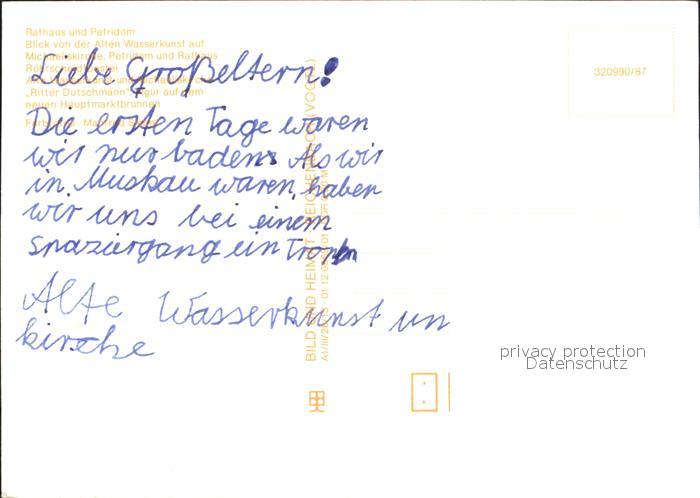 Rathaus und Petridom
Blick von der Alten Wasserkunst auf
Michaeliskirche, Petridom und Rathaus
"Ritter Dutschmann" Figur auf dem
neuen Hauptmarktbrunnen
Liebe Großeltern!
Die ersten Tage waren
wir nur baden. Als wir
in Muskau waren, haben
wir uns bei einem
spaziergang ein
Alte Wasserkunst un
kirche
320990/87
BILD UND HEIMAT REICHENBACH (VOGTL)
A1/III/26/13 01 12 01
privacy protection
Datenschutz